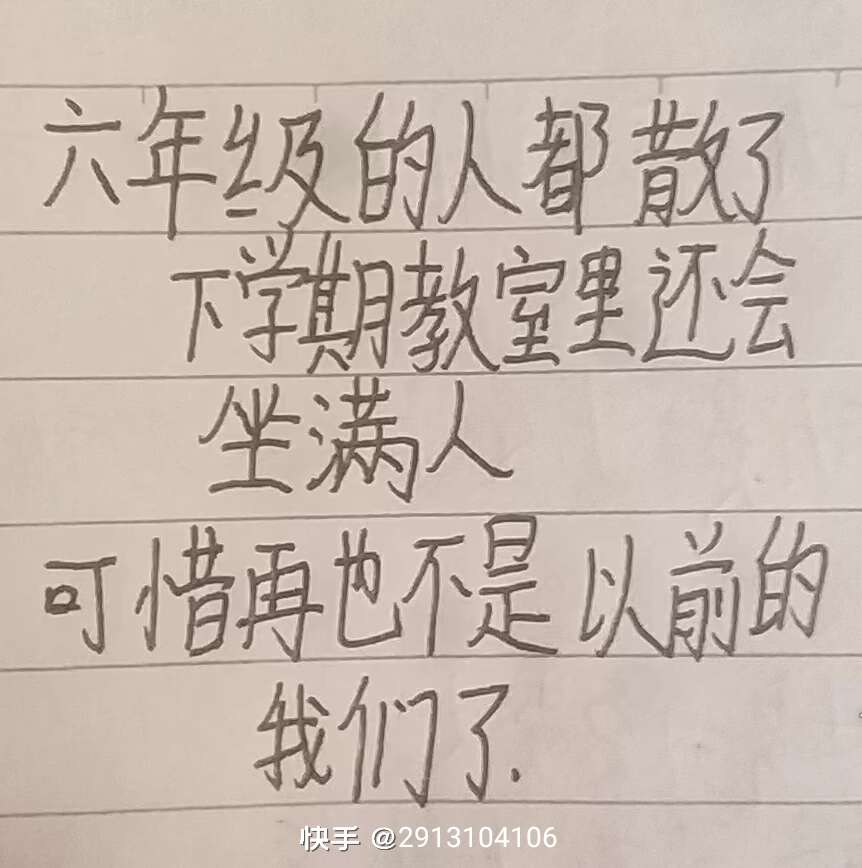 六年级的人都散了
下学期教室里还会
坐满人
可惜再也不是以前的
我们了.
快手 @2913104106